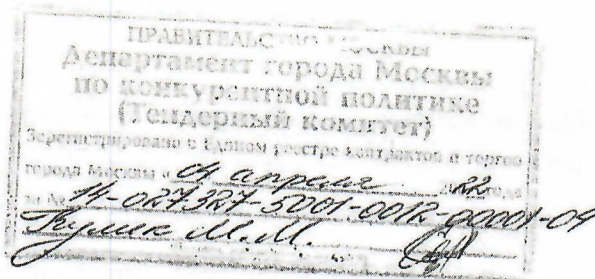 ПРАВИТЕЛЬСТВО МОСКВЫ
Департамент города Москвы
по конкурентной политике
(Тендерный комитет)
Зарегистрировано в Едином реестре контрактов и торгов
города Москвы « 04 апреля 22 года
за № 14-027327-5001-0012-00001-04
М.М.